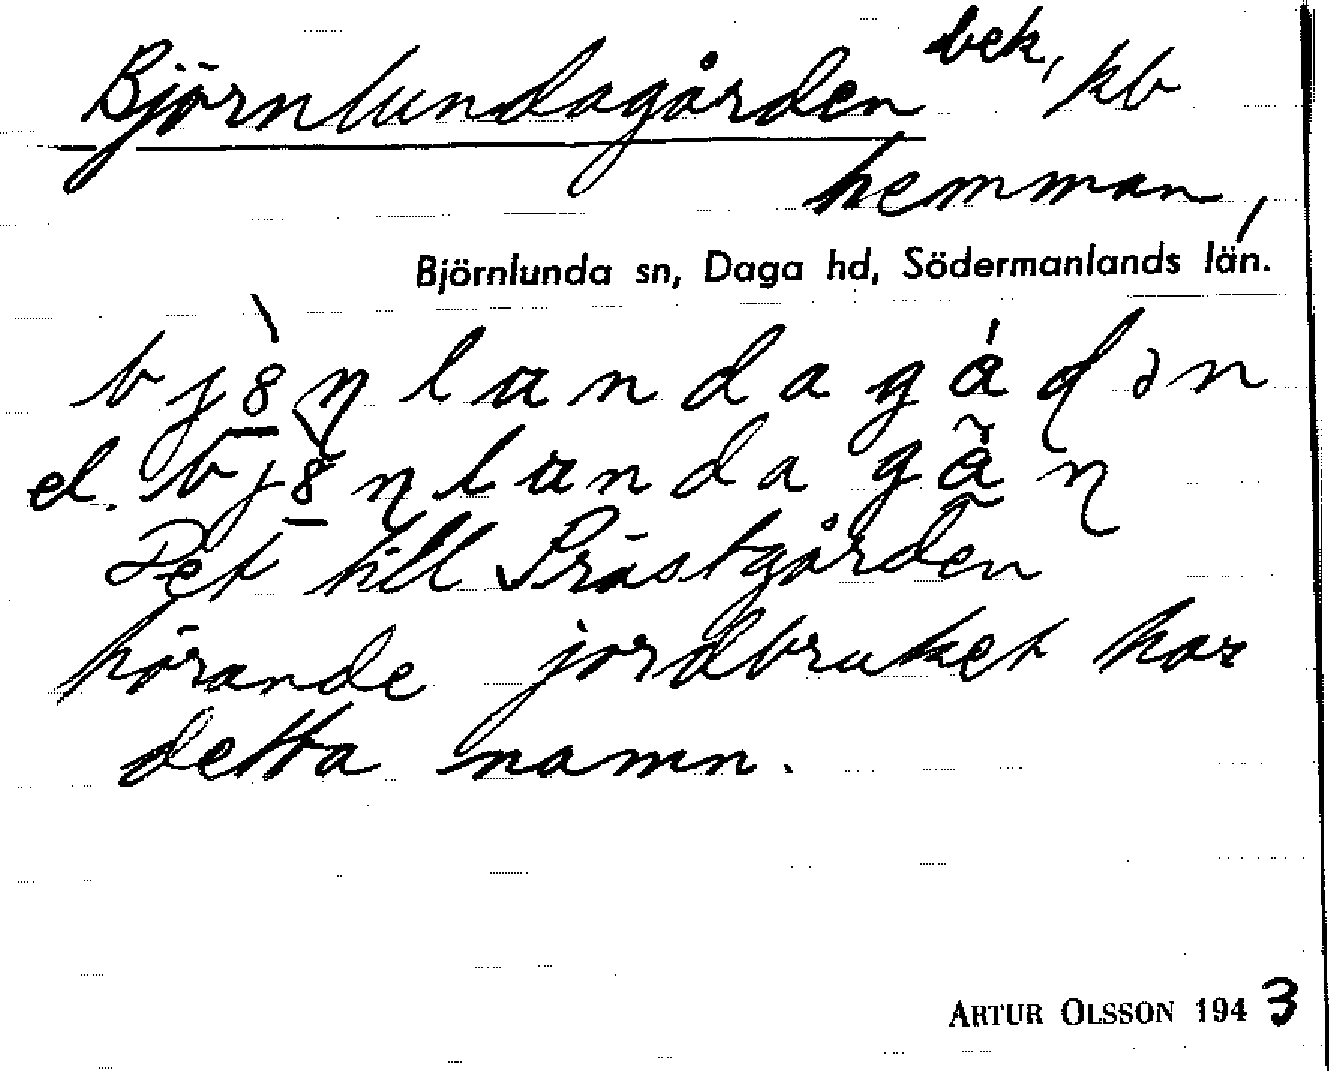 Björnlundagården bek, kb
hemman,
Björnlunda sn, Daga hd, Södermanlands län.
el.
Det till Prästgården
hörande jordbruket har
detta namn.
ARTUR OLSSON 1943